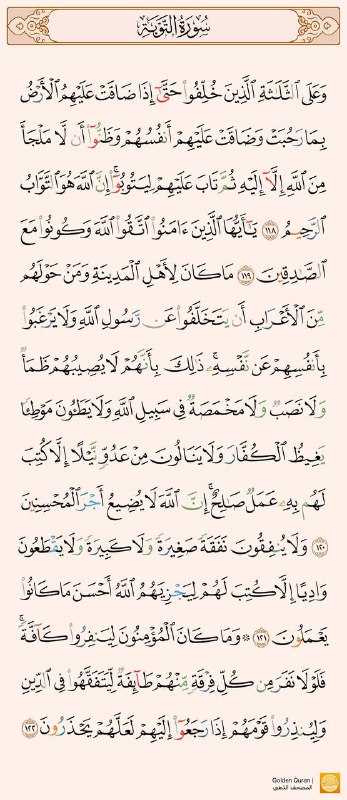 سُورَةُ التَّوۡبَةِ
وَعَلَى ٱلثَّلَٰثَةِ ٱلَّذِينَ خُلِّفُواْ حَتَّىٰٓ إِذَا ضَاقَتۡ عَلَيۡهِمُ ٱلۡأَرۡضُ
بِمَا رَحُبَتۡ وَضَاقَتۡ عَلَيۡهِمۡ أَنفُسُهُمۡ وَظَنُّوٓاْ أَن لَّا مَلۡجَأَ
مِنَ ٱللَّهِ إِلَّآ إِلَيۡهِ ثُمَّ تَابَ عَلَيۡهِمۡ لِيَتُوبُوٓاْۚ إِنَّ ٱللَّهَ هُوَ ٱلتَّوَّابُ
ٱلرَّحِيمُ ١١٨ يَٰٓأَيُّهَا ٱلَّذِينَ ءَامَنُواْ ٱتَّقُواْ ٱللَّهَ وَكُونُواْ مَعَ
ٱلصَّٰدِقِينَ ١١٩ مَا كَانَ لِأَهۡلِ ٱلۡمَدِينَةِ وَمَنۡ حَوۡلَهُم
مِّنَ ٱلۡأَعۡرَابِ أَن يَتَخَلَّفُواْ عَن رَّسُولِ ٱللَّهِ وَلَا يَرۡغَبُواْ
بِأَنفُسِهِمۡ عَن نَّفۡسِهِۦۚ ذَٰلِكَ بِأَنَّهُمۡ لَا يُصِيبُهُمۡ ظَمَأٞ
وَلَا نَصَبٞ وَلَا مَخۡمَصَةٞ فِي سَبِيلِ ٱللَّهِ وَلَا يَطَـُٔونَ مَوۡطِئٗا
يَغِيظُ ٱلۡكُفَّارَ وَلَا يَنَالُونَ مِنۡ عَدُوّٖ نَّيۡلًا إِلَّا كُتِبَ
لَهُم بِهِۦ عَمَلٞ صَٰلِحٌۚ إِنَّ ٱللَّهَ لَا يُضِيعُ أَجۡرَ ٱلۡمُحۡسِنِينَ
١٢٠ وَلَا يُنفِقُونَ نَفَقَةٗ صَغِيرَةٗ وَلَا كَبِيرَةٗ وَلَا يَقۡطَعُونَ
وَادِيًا إِلَّا كُتِبَ لَهُمۡ لِيَجۡزِيَهُمُ ٱللَّهُ أَحۡسَنَ مَا كَانُواْ
يَعۡمَلُونَ ١٢١ ۞ وَمَا كَانَ ٱلۡمُؤۡمِنُونَ لِيَنفِرُواْ كَآفَّةٗۚ
فَلَوۡلَا نَفَرَ مِن كُلِّ فِرۡقَةٖ مِّنۡهُمۡ طَآئِفَةٞ لِّيَتَفَقَّهُواْ فِي ٱلدِّينِ
وَلِيُنذِرُواْ قَوۡمَهُمۡ إِذَا رَجَعُوٓاْ إِلَيۡهِمۡ لَعَلَّهُمۡ يَحۡذَرُونَ ١٢٢
Golden Quran |
المصحف الذهبي